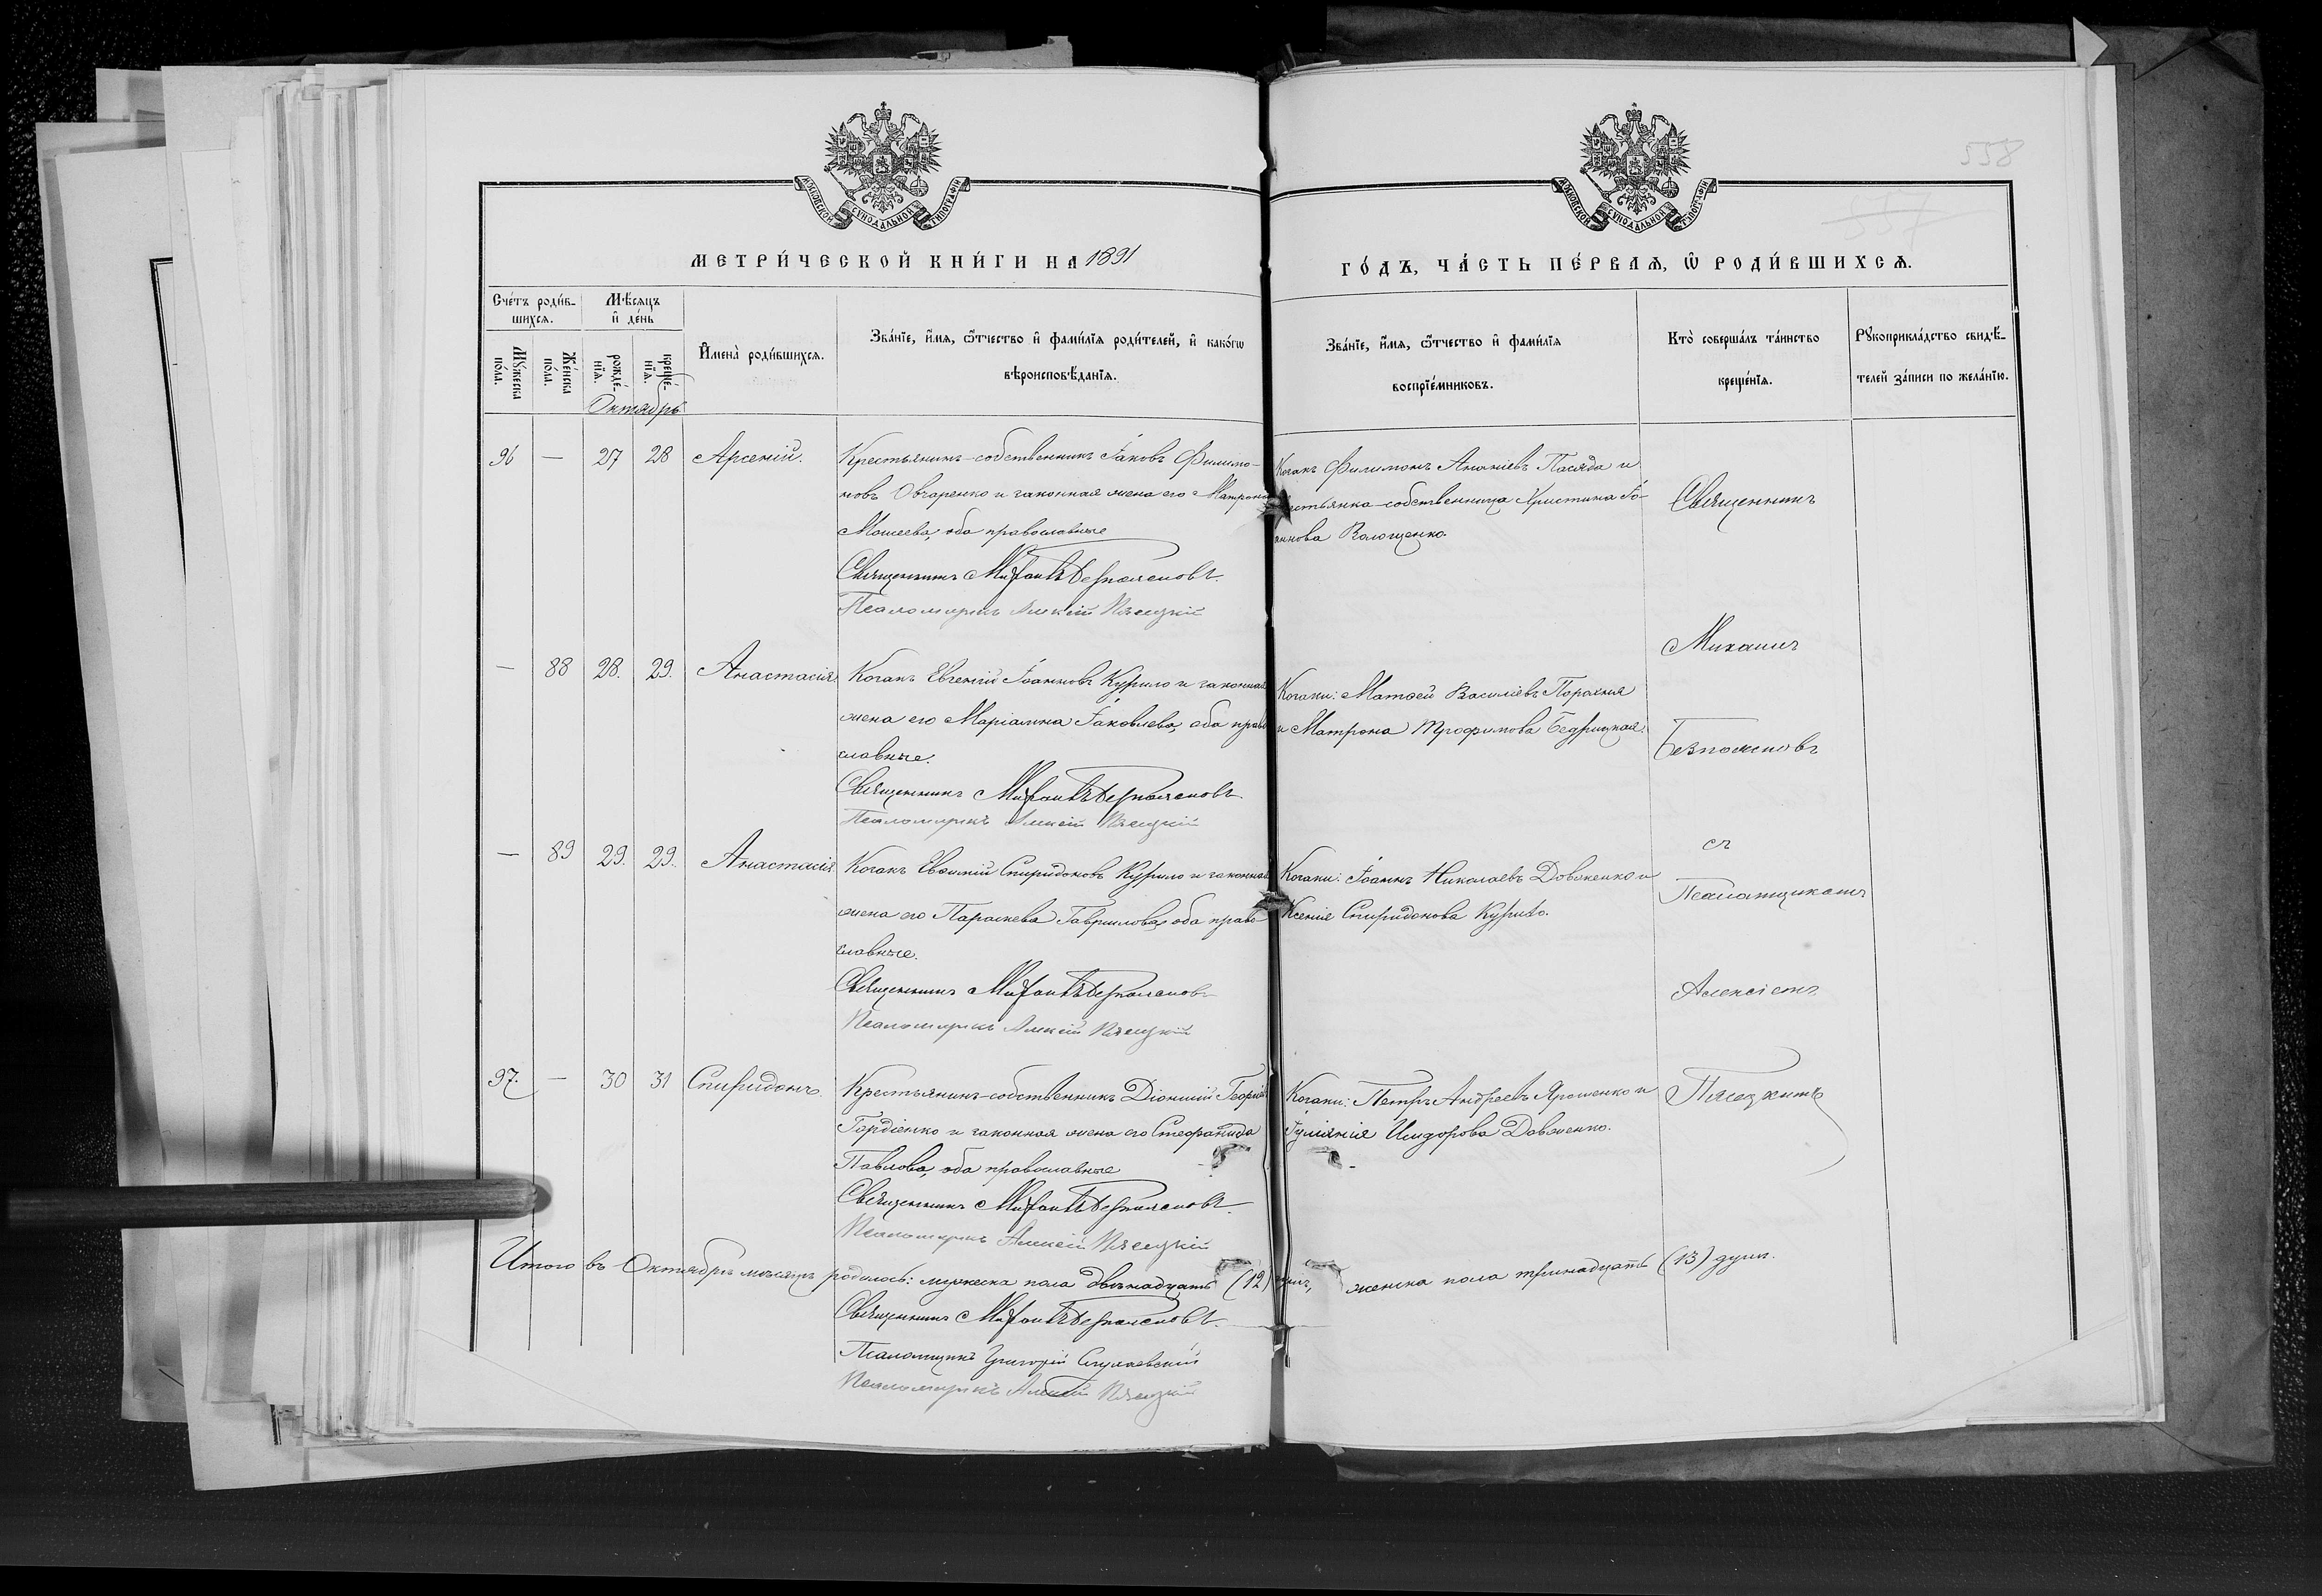 558
557
МОСКОВСКОЙ СУНОДАЛЬНОЙ ТИПОГРАФІИ
МОСКОВСКОЙ СУНОДАЛЬНОЙ ТИПОГРАФІИ
МЕТРИ́ЧЕСКОЙ КНИ́ГИ НА 1891
ГО́ДЪ, ЧА́СТЬ ПЕ́РВАѦ, Ѿ РОДИ́ВШИХСѦ.
Сче́тъ роди́в-
шихсѧ.
Мѣ́сяцъ
и҆ де́нь
Мꙋ́жеска
по́ла.
Же́нска
по́ла.
рожде́-
нїѧ.
креще́-
нїѧ.
И҆мена̀ роди́вшихсѧ.
Зва́нїе, и҆́мѧ, ѻ҆́тчество и҆ фами́лїѧ роди́телей, и҆ како́гѡ
вѣроисповѣ́данїѧ.
Зва́нїе, и҆́мѧ, ѻ҆́тчество и҆ фами́лїѧ
воспрїе́мниковъ.
Кто̀ соверша́лъ та́инство
креще́нїѧ.
Рꙋкоприкла́дство свидѣ́-
телей за́писи по жела́нїю.
Октябрь
96 — 27 28 Арсеній.
Крестьянинъ-собственникъ Іаковъ Филимо-
новъ Овчаренко и законная жена его Матрона
Моисеева, оба православные
Священникъ Михаилъ Безпоясновъ.
Псаломщикъ Алексій Пясецкій
Козакъ Филимонъ Ананіевъ Пасяда и
крестьянка-собственница Христина Іо-
аннова Волощенко.
Священникъ
Михаилъ
Безпоясновъ
съ
Псаломщикомъ
Алексіемъ
Пясецкимъ
— 88 28. 29. Анастасія.
Козакъ Евгеній Іоанновъ Курило и законная
жена его Маріамна Іаковлева, оба право
славные.
Священникъ Михаилъ Безпоясновъ.
Псаломщикъ Алексій Пясецкій
Козаки: Матѳей Василіевъ Порахня
и Матрона Трофимова Бедрицкая.
— 89 29. 29. Анастасія
Козакъ Евѳимій Спиридоновъ Курило и законная
жена его Параскева Гавриилова, оба право
славные.
Священникъ Михаилъ Безпоясновъ
Псаломщикъ Алексій Пясецкій
Козаки: Іоаннъ Николаевъ Довженко и
Ксенія Спиридонова Курило.
97. — 30 31 Спиридонъ.
Крестьянинъ-собственникъ Діонисій Георгіев
Гордіенко и законная жена его Стефанида
Павлова, оба православные
Священникъ Михаилъ Безпоясновъ.
Псаломщикъ Алексій Пясецкій
Козаки: Петръ Андреевъ Ярошенко и
Іуліанія Исидорова Довженко.
Итого въ Октябрѣ мѣсяцѣ родилось: мужеска пола двѣнадцать (12) душъ, женска пола тринадцать (13) душъ.
Священникъ Михаилъ Безпоясновъ.
Псаломщикъ Григорій
Псаломщикъ Алексій Пясецкій